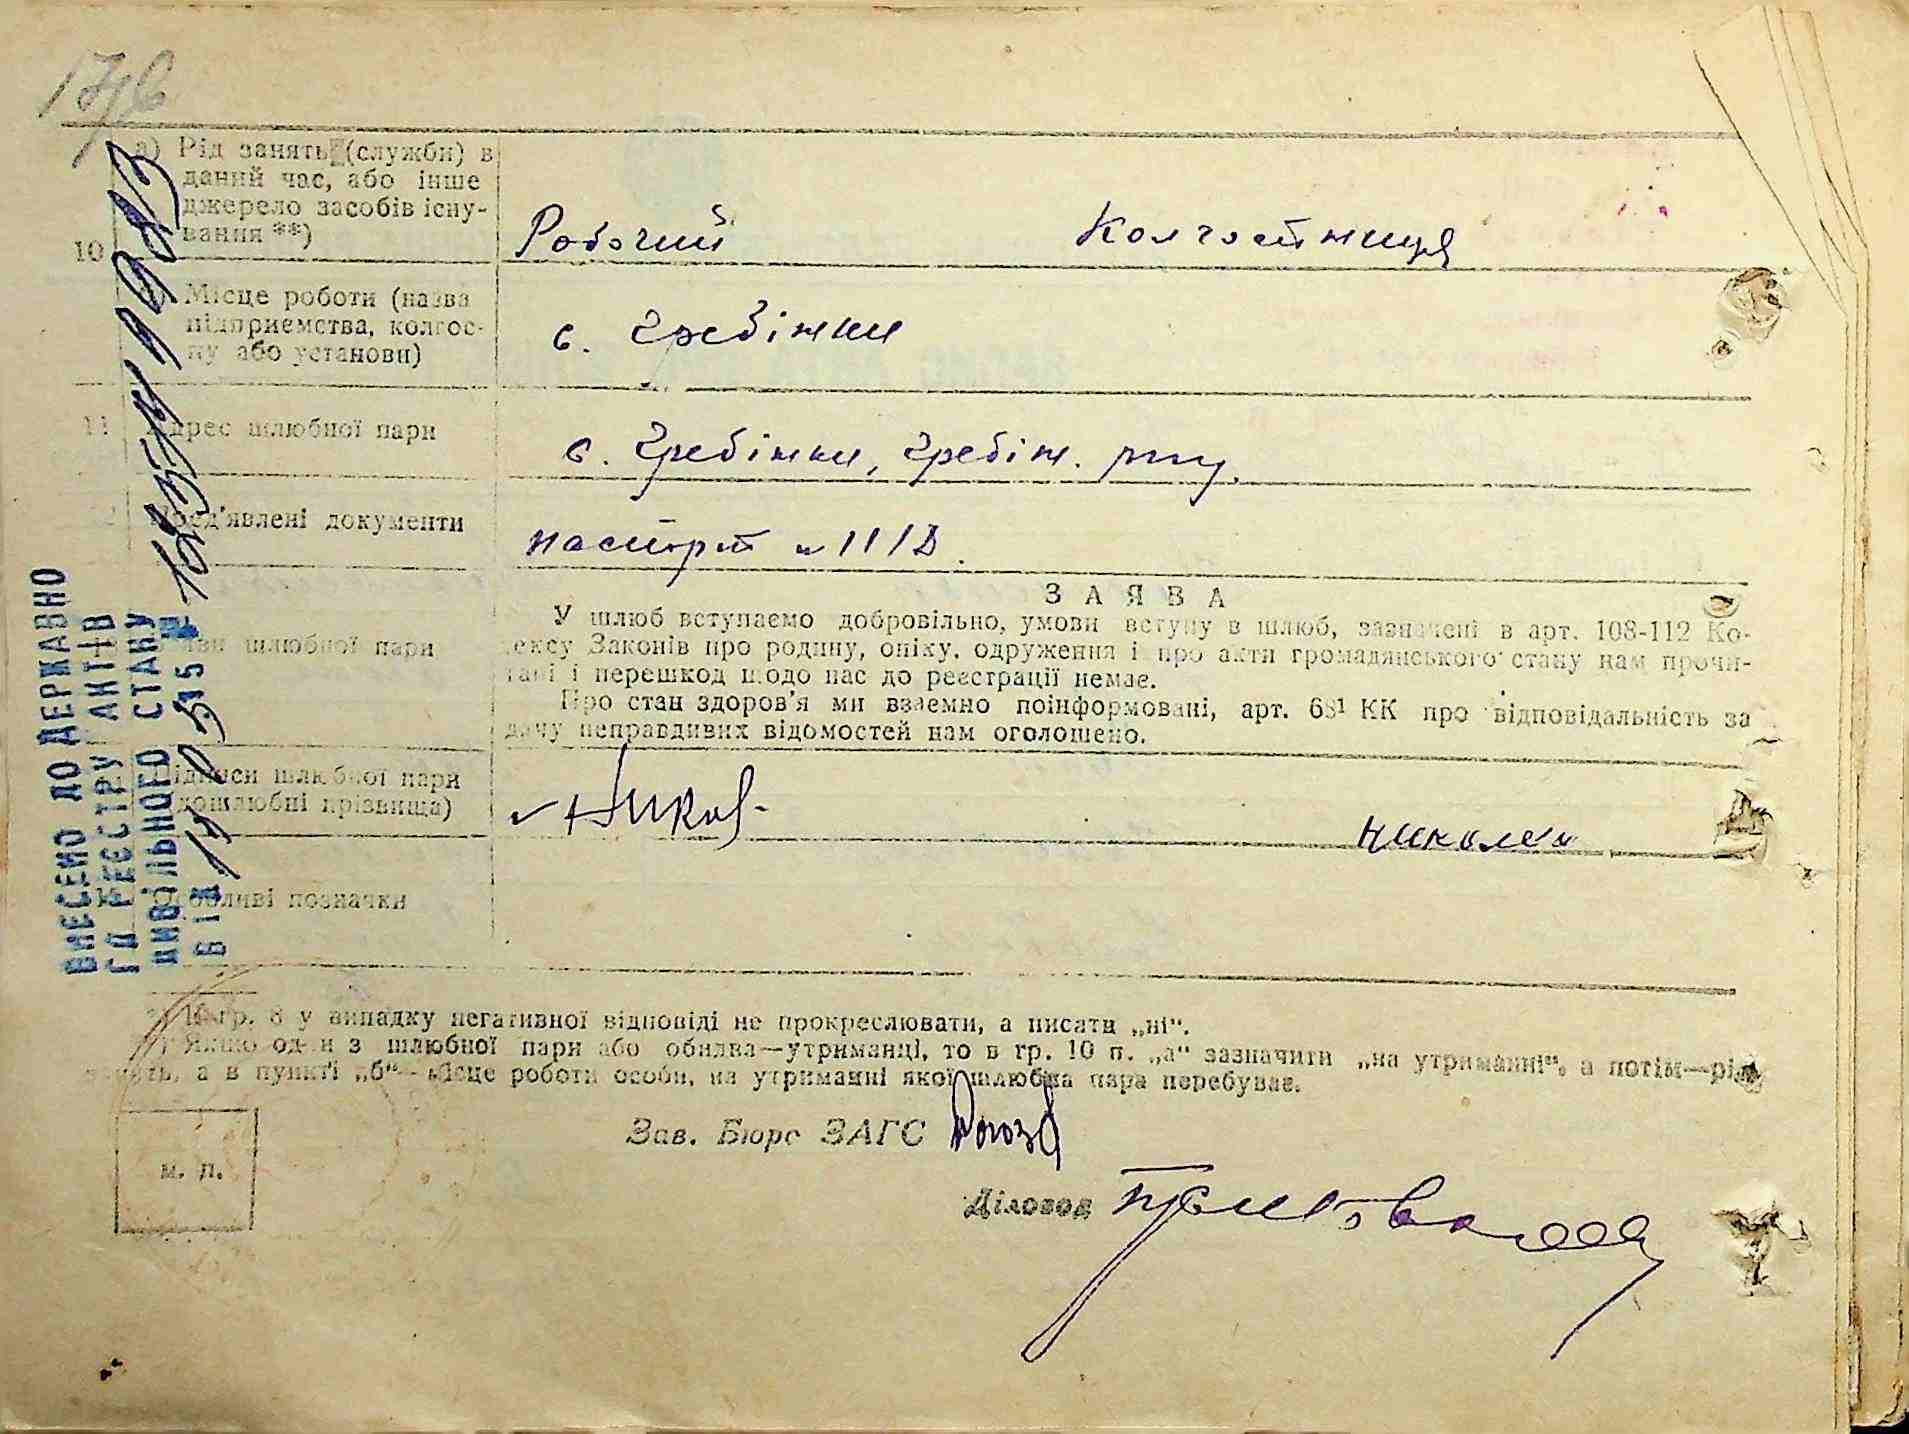 а) Рід занять (службы) в
даний час, або інше
джерело засобів існу-
вання **)
10
Робочий Колгостница
Місце роботи (назва
підприємства, колгос-
пу або установи)
с. Гребінки
11 Адрес шлюбної пари
с. Гребінки, Гребін. р-ну.
Пред'явлені документи
паспорт
ЗАЯВА
У шлюб вступаємо добровільно, умови вступу в шлюб, зазначені в арт. 108-112 Ко-
дексу Законів про родину, опіку, одруження і про акти громадянського стану нам прочи-
тані і перешкод щодо нас до реєстрації немає.
Про стан здоров'я ми взаємно поінформовані, арт. 68¹ КК про відповідальність за
дачу неправдивих відомостей нам оголошено.
шлюбної пари
Підписи шлюбної пари
(дошлюбні прізвища)
Особливі позначки
*) В гр. 8 у випадку негативної відповіді не прокреслювати, а писати „ні“.
**) Якщо один з шлюбної пари або обидва—утриманці, то в гр. 10 п. „а“ зазначити „на утриманні“, а потім—рід
занять, а в пункті „б“—місце роботи особи, на утриманні якої шлюбна пара перебуває.
Зав. Бюро ЗАГС
Діловод
м. п.
ВНЕСЕНО ДО ДЕРЖАВНО
ГО РЕЄСТРУ АКТІВ
ЦИВІЛЬНОГО СТАНУ
ВІД №